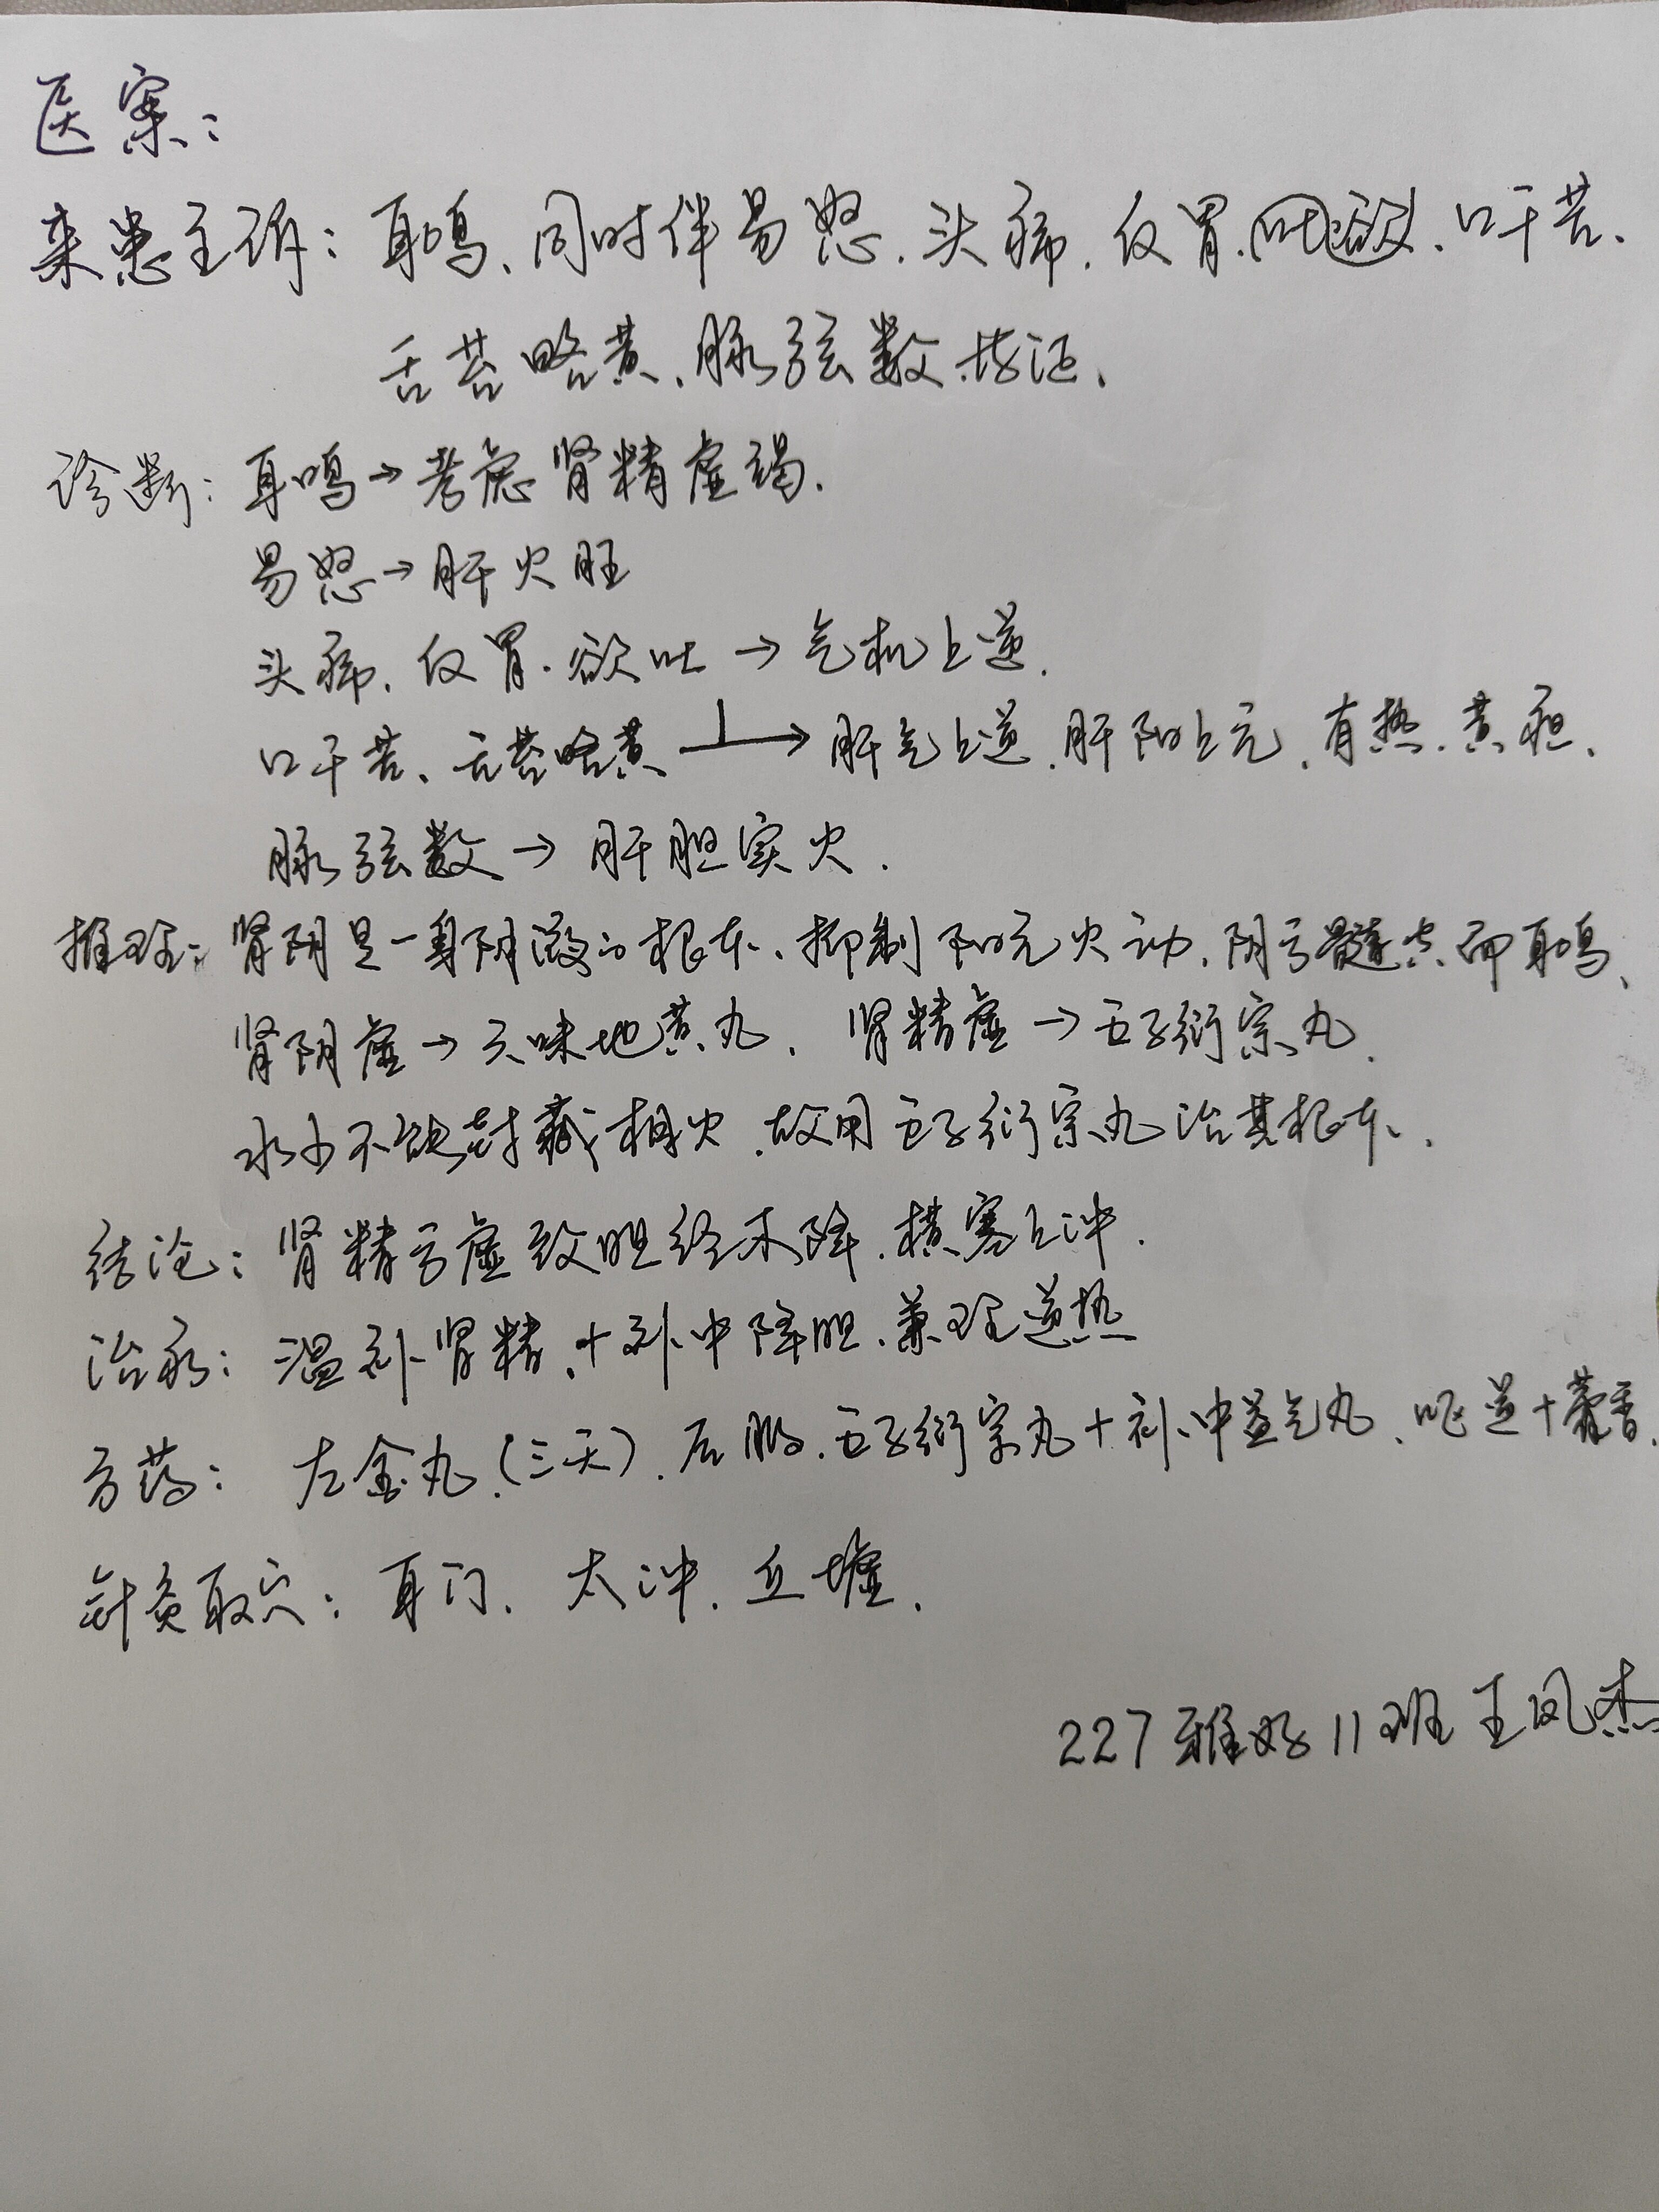 医案:
来患主诉: 耳鸣、同时伴易怒. 头痛. 反胃. 吐欲. 口干苦.
舌苔略黄、脉弦数.
诊断: 耳鸣→考虑肾精虚竭.
易怒→肝火旺
头痛. 反胃. 欲吐→气机上逆.
口干苦、舌苔略黄→肝气上逆. 肝阳上亢, 有热. 黄疸.
脉弦数→肝胆实火.
推理: 肾阴是一身阴液的根本、抑制阳亢火动. 阴亏髓失而耳鸣、
肾阴虚→六味地黄丸. 肾精虚→五子衍宗丸.
水少不能封藏相火. 故用五子衍宗丸治其根本.
结论: 肾精亏虚致胆经不降. 横塞上冲.
治疗: 温补肾精. + 补中降胆. 兼理逆热
方药: 左金丸.(三天). 后服. 五子衍宗丸+补中益气丸、呕逆+藿香.
针灸取穴: 耳门. 太冲. 丘墟.
227雅好11班王凤杰